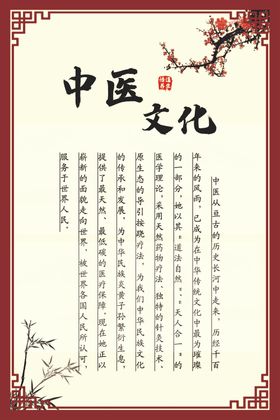 中医
文化
中医从亘古的历史长河中走来，历经千百
年来的风雨，已成为在中华传统文化中最为璀璨
的一部分，她以其"道法自然"、"天人合一"的
医学理论，采用天然药物疗法、独特的针灸技术、
原生态的导引按跷疗法，为我们中华民族文化
的传承和发展，为中华民族炎黄子孙繁衍生息，
提供了最天然、最低碳的医疗保障。现在她正以
崭新的面貌走向世界，被世界各国人民所认可、
服务于世界人民。